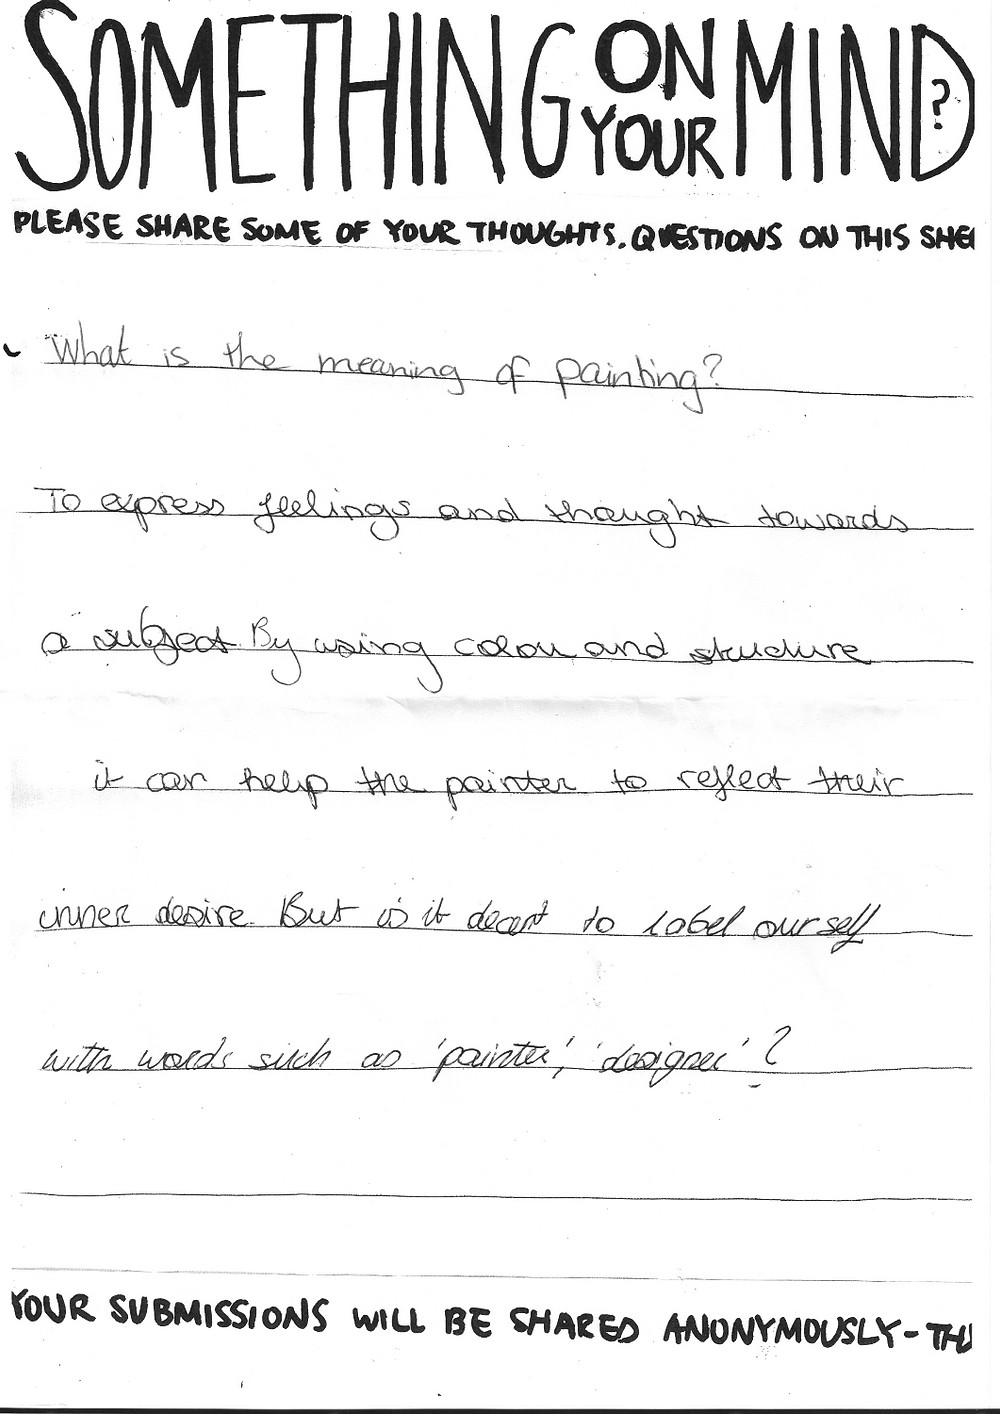 SOMETHING ON YOUR MIND?
PLEASE SHARE SOME OF YOUR THOUGHTS. QUESTIONS ON THIS SHE
What is the meaning of painting?
To express feelings and thought towards
a subject. By using colour and structure
it can help the painter to reflect their
inner desire. But is it decent to label ourself
with words such as 'painter', 'designer'?
YOUR SUBMISSIONS WILL BE SHARED ANONYMOUSLY - TH